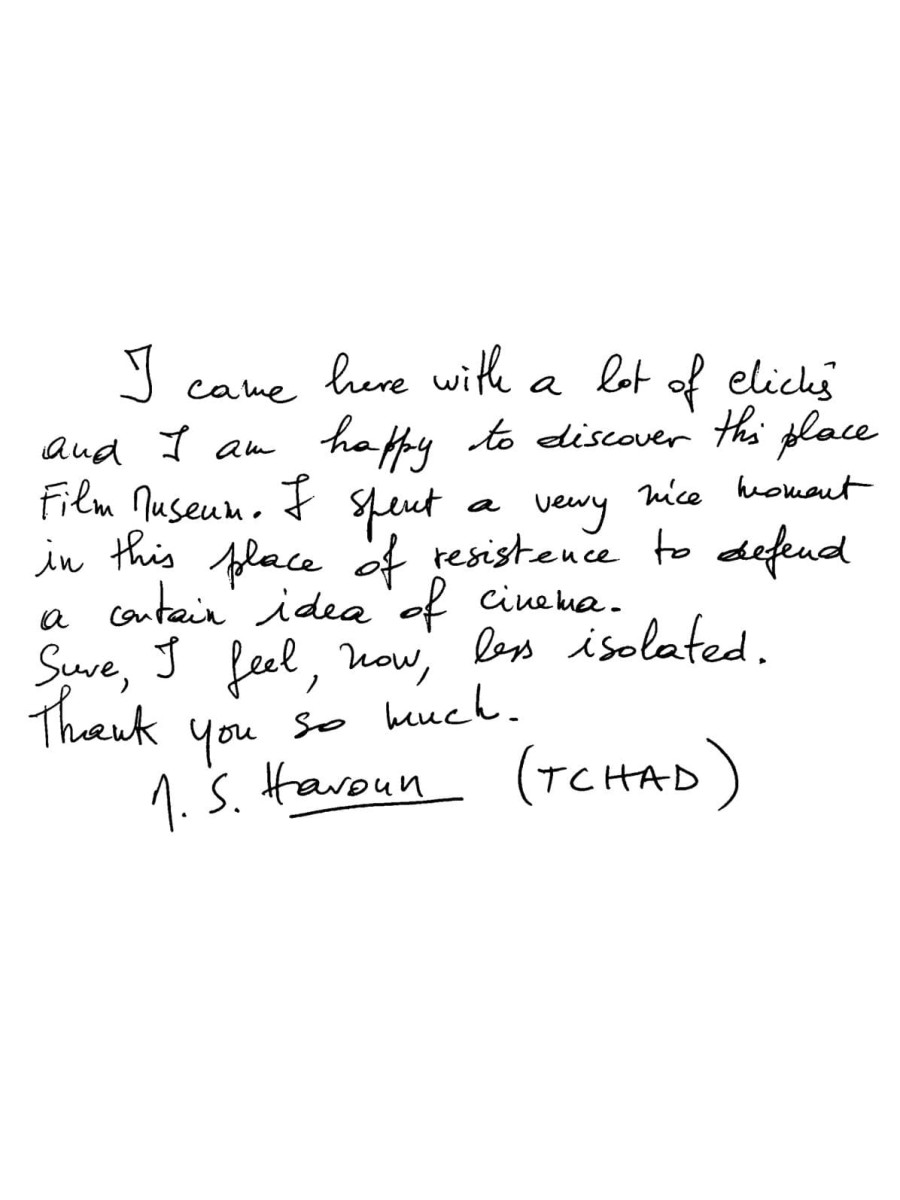 I came here with a lot of clichés
and I am happy to discover this place
Film Museum. I spent a very nice moment
in this place of resistence to defend
a certain idea of cinema.
Sure, I feel, now, less isolated.
Thank you so much.
M. S. Haroun (TCHAD)